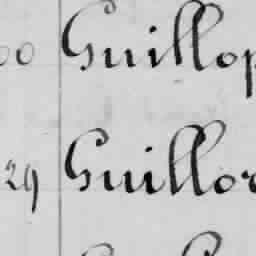 00 Guillop
29 Guillor